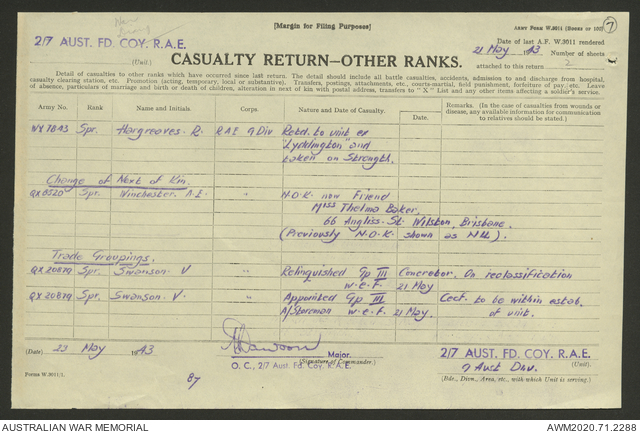 New
[Margin for Filing Purposes]
ARMY FORM W.3011 (BOOKS OF 100)
7
2/7 AUST. FD. COY. R.A.E.
(Unit).
Date of last A.F. W.3011 rendered
21 May 1943
CASUALTY RETURN—OTHER RANKS.
attached to this return 2
Detail of casualties to other ranks which have occurred since last return. The detail should include all battle casualties, accidents, admission to and discharge from hospital,
casualty clearing station, etc. Promotion (acting, temporary, local or substantive). Transfers, postings, attachments, etc., courts-martial, field punishment, forfeiture of pay, etc. Leave
of absence, particulars of marriage or birth or death of children, alteration in next of kin with postal address, transfers to "X" List and any other items affecting a soldier's service.
Army No. Rank Name and Initials. Corps. Nature and Date of Casualty. Date. Remarks. (In the case of casualties from wounds or disease, any available information for communication to relatives should be stated.)
NX7843 Spr. Hargreaves. R. RAE 9 Div Retd. to unit ex
"Lyddington" and
taken on Strength.
Change of Next of Kin.
QX8520 Spr. Winchester. A.E. " N.O.K. now Friend
Miss Thelma Baker,
66 Angliss St. Wilston, Brisbane.
(Previously N.O.K. shown as Nil).
Trade Groupings.
QX20879 Spr. Swanson. V " Relinquished Gp III Concretor. On reclassification
w.e.f. 21 May
QX20879 Spr. Swanson. V. " Appointed Gp III Cert. to be within estab.
A/Storeman w.e.f. 21 May of unit.
(Date) 23 May 1943
Major.
(Signature of Commander.)
O. C., 2/7 Aust. Fd. Coy. R.A.E.
2/7 AUST. FD. COY. R.A.E.
(Unit).
9 Aust Div.
(Bde., Divn., Area, etc., with which Unit is serving.)
Forms W.3011/1.
87
AUSTRALIAN WAR MEMORIAL
AWM2020.71.2288